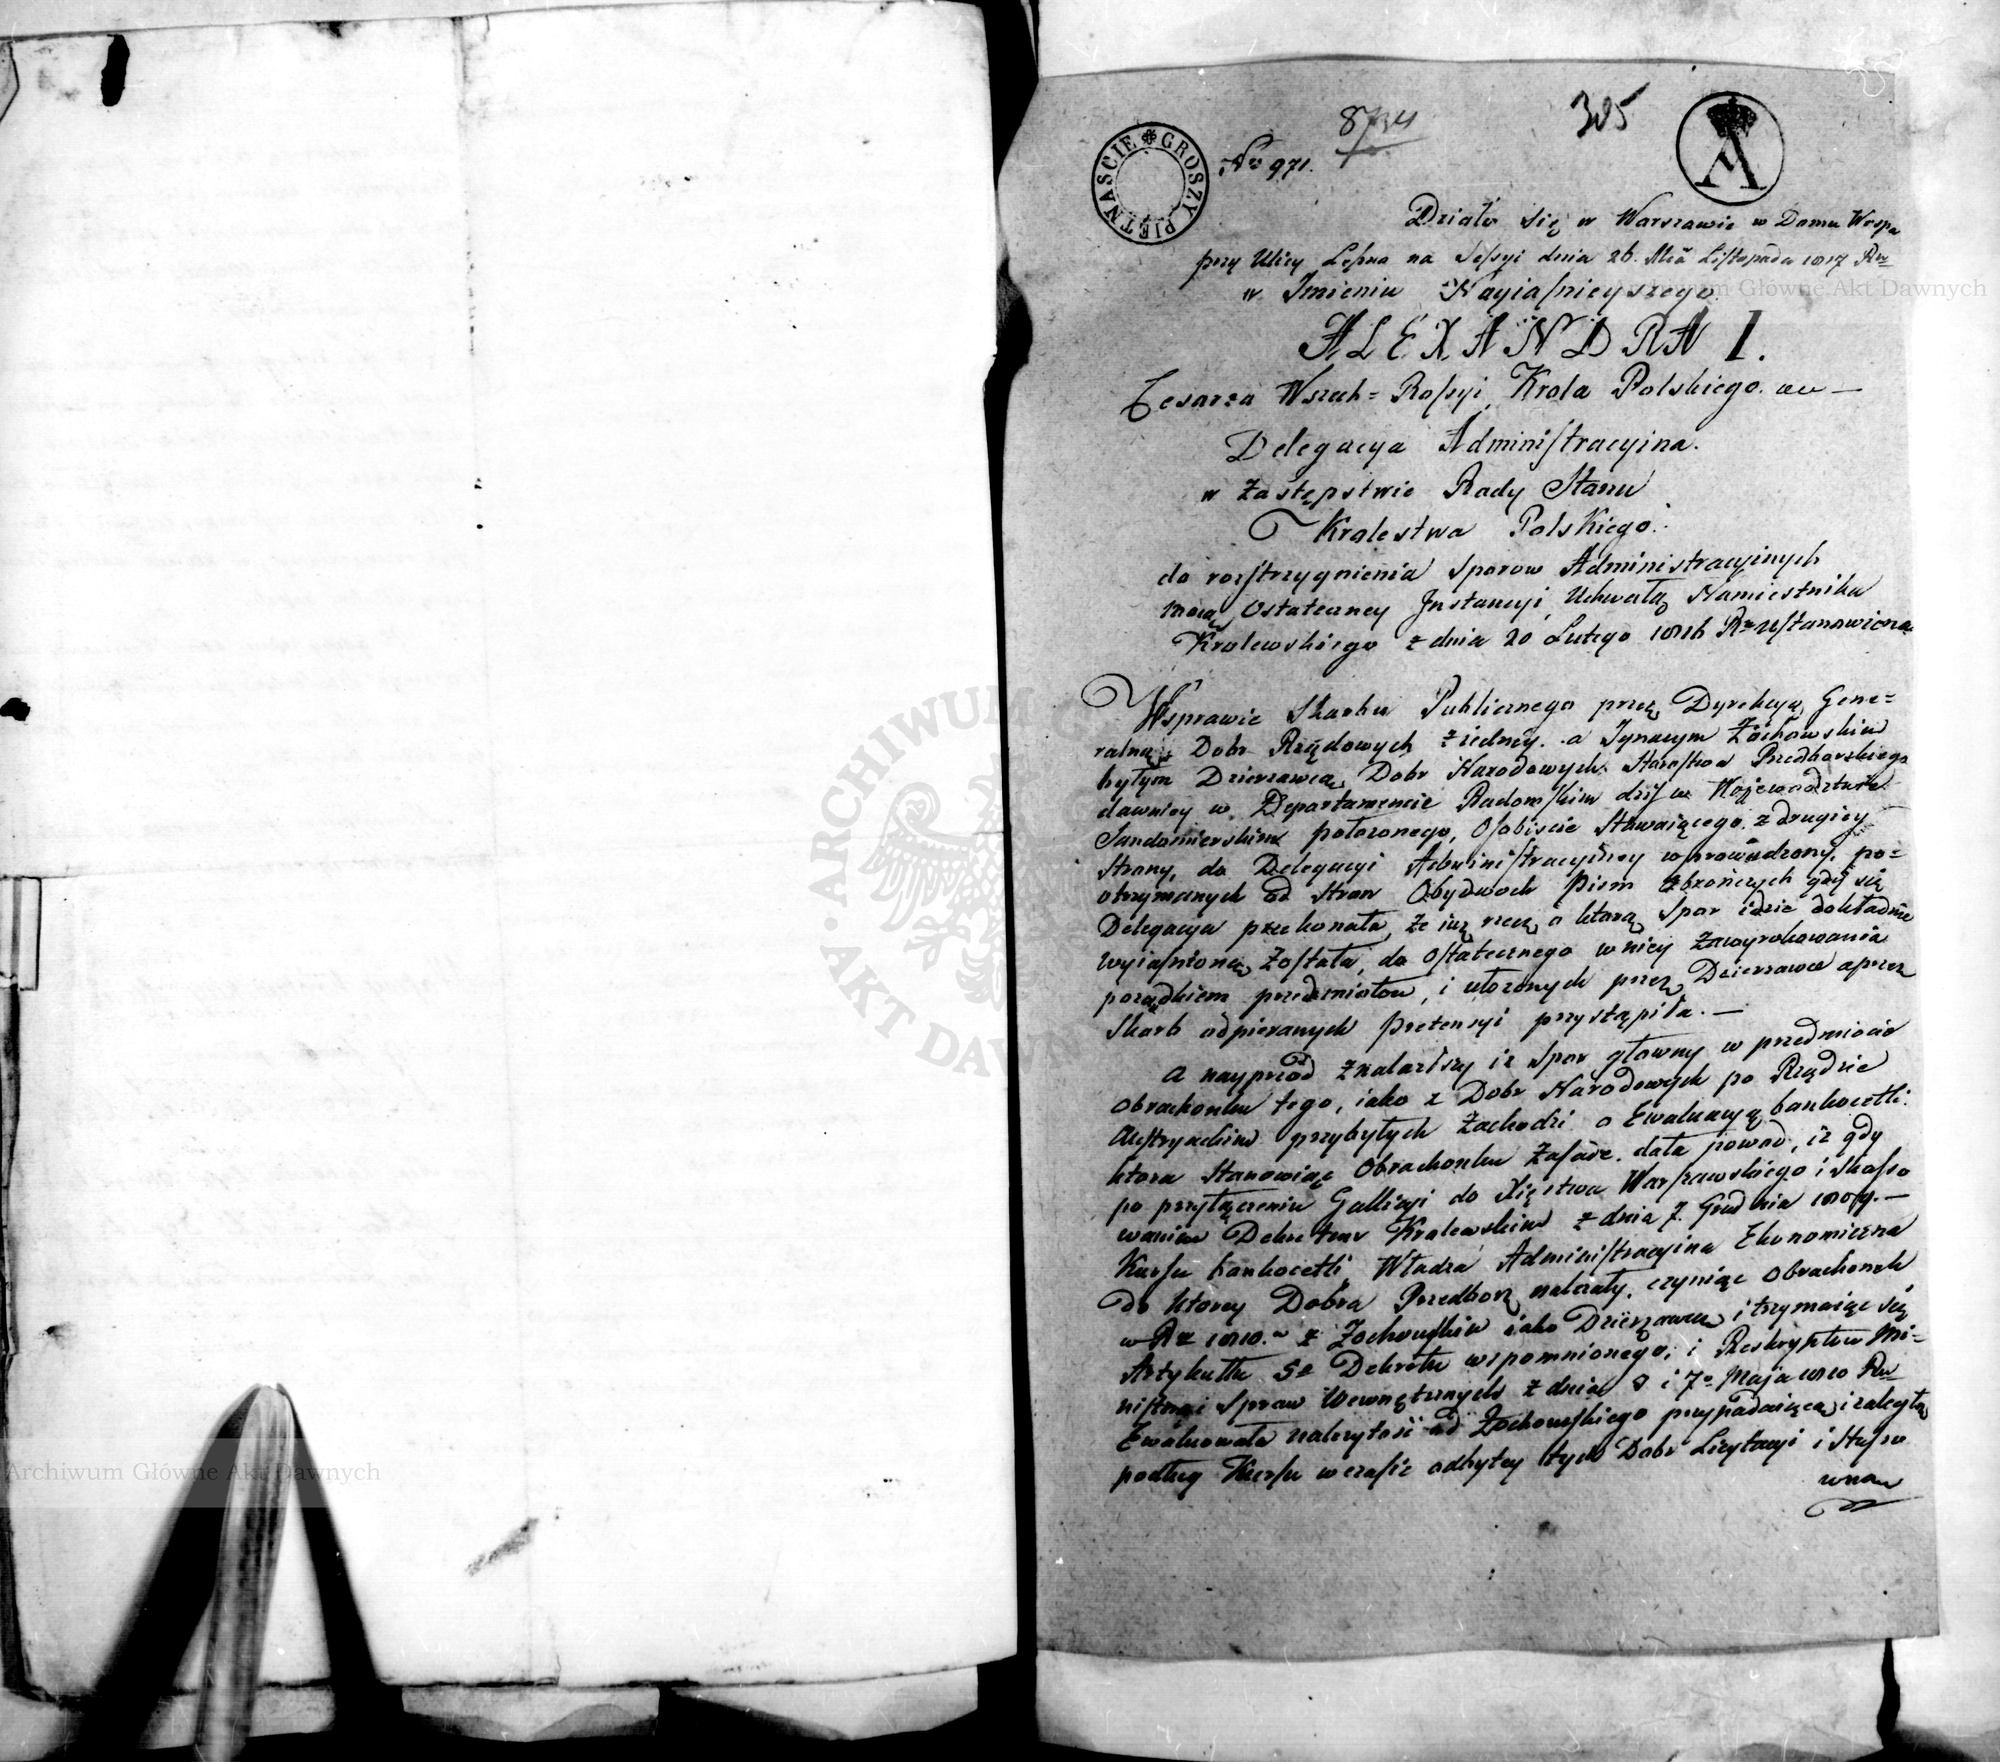 PIĘTNAŚCIE GROSZY
No 971.
305
A
Działo się w Warszawie w Domu
przy Ulicy Leszno na Sessyi dnia 26. Mca Listopada 1817 Ru
w Imieniu Nayiaśnieyszego
ALEXANDRA I.
Cesarza Wszech=Rossyi, Krola Polskiego. &c &c —
Delegacya Administracyina.
w Zastępstwie Rady Stanu
Krolestwa Polskiego.
do rozstrzygnienia Sporow Administracyinych
mocą Ostateczney Jnstancyi, Uchwałą Namiestnika
Krolewskiego z dnia 20 Lutego 1816 Ru Ustanowiona
Wsprawie Skarbu Publicznego przez Dyrekcyą Gene=
ralną Dobr Rządowych z iedney. a Jgnacym Żochowskim
byłym Dzierzawcą Dobr Narodowych Starostwa Przedborskiego
dawniey w Departamencie Radomskim dziś w Wojewodztwie
Sandomierskim położonego, Osobiście Stawaiącego z drugiey
Strony, do Delegacyi Administracyiney wprowadzoney, po=
otrzymanych od Stron Obydwoch Pism obrończych gdy się
Delegacya przekonała, że iuż rzecz o ktorą Spor idzie dokładnie
wyiaśnioną Została, do Ostatecznego w niey Zawyrokowania
porządkiem przedmiotow, i ułożonych przez Dzierzawcę a przez
Skarb odpieranych pretensyi przystąpiła. —
A nayprzod znalazłszy iż Spor głowny w przedmiocie
Obrachunku tego, iako z Dobr Narodowych po Rządzie
Austryackim przybyłych Zachodzi o Ewaluacyą bankocetli.
ktora Stanowiąc Obrachunku Zasadę. dała powod, iż gdy
po przyłączeniu Gallicyi do Xięstwa Warszawskiego i Skasso
waniem Dekretem Krolewskim z dnia 7. Grudnia 1809. —
Kursu bankocetli Władza Administracyina Ekonomiczna
do ktorey Dobra Przedborz należały, czyniąc Obrachunek
w Rz 1810. z Żochowskim iako Dzierzawcą i trzymaiąc się
Artykułu 5o Dekretu wspomnionego, i Reskryptow Mi=
nistra Spraw Wewnętrznych z dnia 8 i 7o Maja 1810 Ru
Ewaluowała należytość od Żochowskiego przypadaiącą i zaległą
podług Kursu w czasie odbytey tych Dobr Licytacyi i Stoso
wnan
ARCHIWUM GŁÓWNE AKT DAWNYCH
Archiwum Główne Akt Dawnych
Archiwum Główne Akt Dawnych